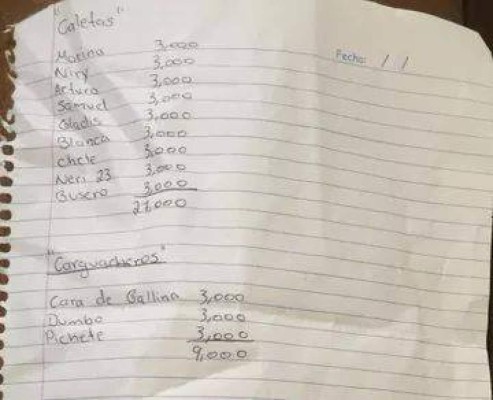 "Caletas"
Fecha: / /
Marina 3,000
Niry 3,000
Arturo 3,000
Samuel 3,000
Gladis 3,000
Blanca 3,000
Chele 3,000
Neri 23 3,000
Busero 3,000
27,000
"Carguacheros"
Cara de Gallina 3,000
Dumbo 3,000
Pichete 3,000
9,000